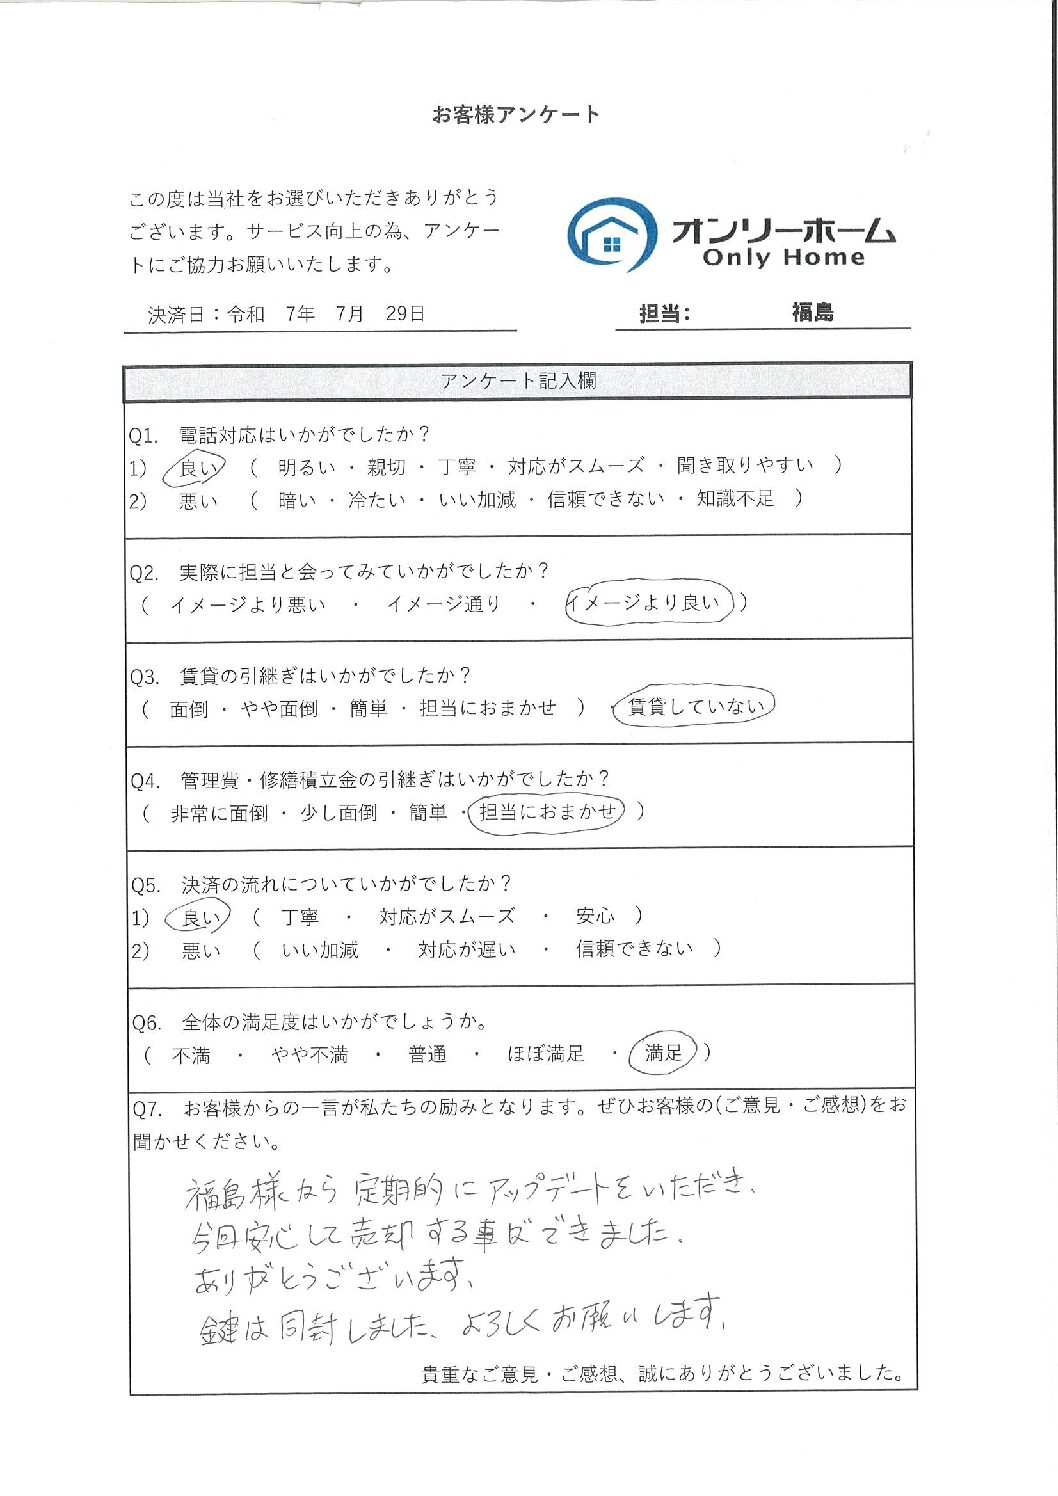 お客様アンケート
この度は当社をお選びいただきありがとう
ございます。サービス向上の為、アンケー
トにご協力お願いいたします。
オンリーホーム
Only Home
決済日：令和　7年　7月　29日
担当:　福島
アンケート記入欄
Q1.　電話対応はいかがでしたか？
1)　良い　（　明るい ・ 親切 ・ 丁寧 ・ 対応がスムーズ ・ 聞き取りやすい　）
2)　悪い　（　暗い ・ 冷たい ・ いい加減 ・ 信頼できない ・ 知識不足　）
Q2.　実際に担当と会ってみていかがでしたか？
（　イメージより悪い　・　イメージ通り　・　イメージより良い　）
Q3.　賃貸の引継ぎはいかがでしたか？
（　面倒 ・ やや面倒 ・ 簡単 ・ 担当におまかせ　）　・賃貸していない
Q4.　管理費・修繕積立金の引継ぎはいかがでしたか？
（　非常に面倒 ・ 少し面倒 ・ 簡単 ・ 担当におまかせ　）
Q5.　決済の流れについていかがでしたか？
1)　良い　（　丁寧　・　対応がスムーズ　・　安心　）
2)　悪い　（　いい加減　・　対応が遅い　・　信頼できない　）
Q6.　全体の満足度はいかがでしょうか。
（　不満　・　やや不満　・　普通　・　ほぼ満足　・　満足　）
Q7.　お客様からの一言が私たちの励みとなります。ぜひお客様の(ご意見・ご感想)をお
聞かせください。
福島様から定期的にアップデートをいただき、
今回安心して売却する事ができました、
ありがとうございます、
鍵は同封しました、よろしくお願いします、
貴重なご意見・ご感想、誠にありがとうございました。